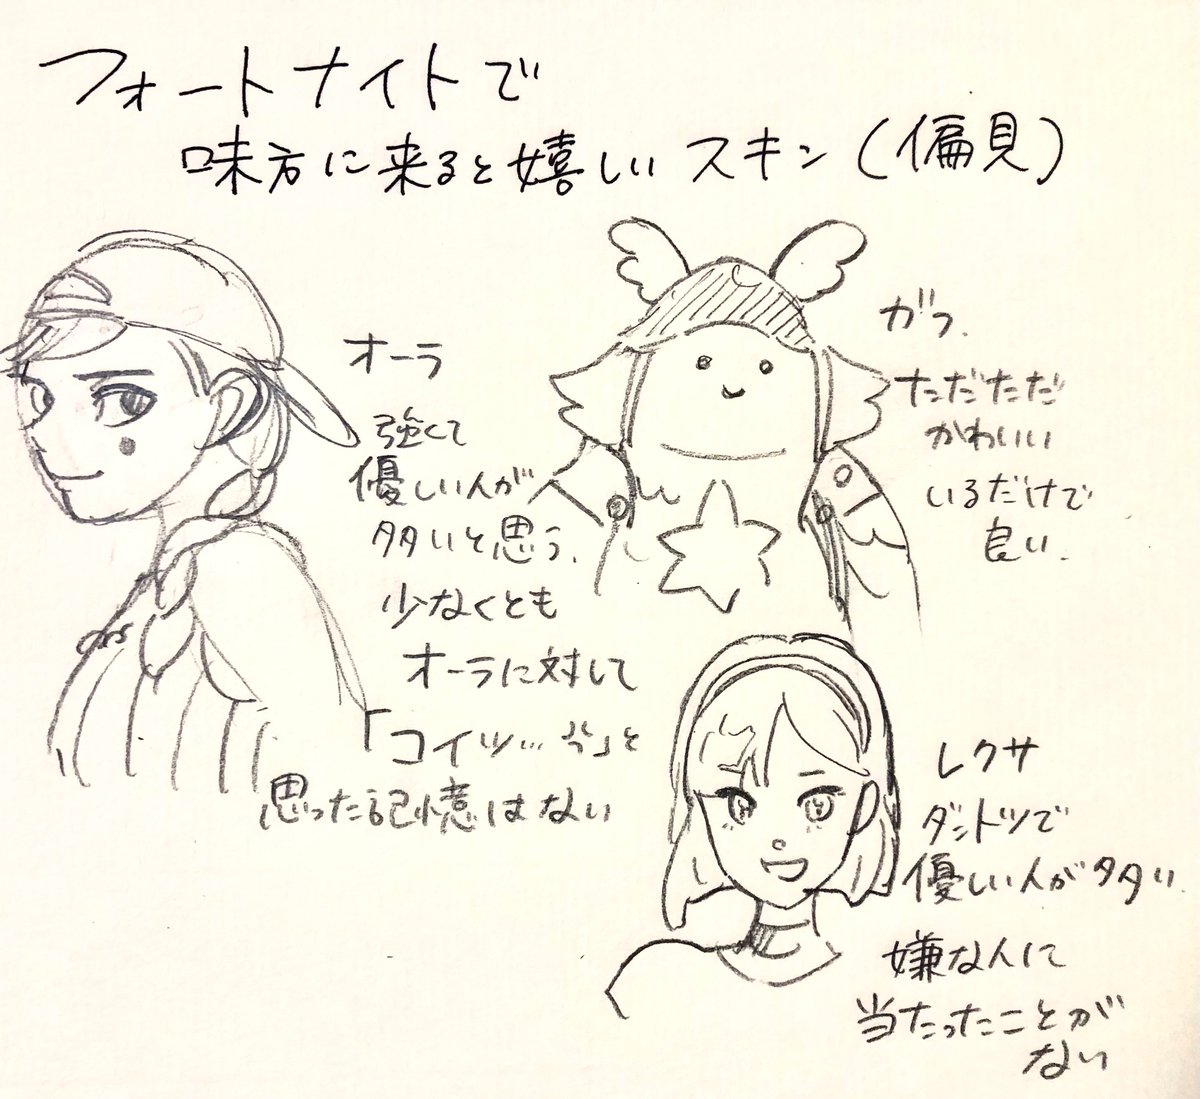 フォートナイトで
味方に来ると嬉しいスキン(偏見)
オーラ
強くて
優しい人が
多いと思う.
少なくとも
オーラに対して
「コイツ…
と
思った記憶はない
ガフ.
ただただ
かわいい
いるだけで
良い.
レクサ
ダントツで
優しい人が多い
嫌な人に
当たったことが
ない